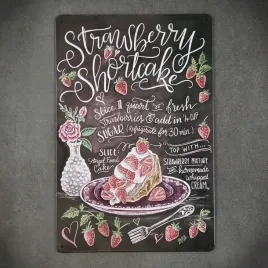 Strawberry
Shortcake
Slice 1 quart of fresh
strawberries & add in ¼ c. of
SUGAR (refrigerate for 30 min.)
SLICE
Angel Food
Cake
TOP WITH...
STRAWBERRY MIXTURE
and homemade
whipped
CREAM.